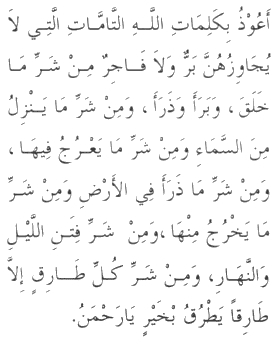 أَعُوْذُ بِكَلِمَاتِ اللَّهِ التَّامَّاتِ الَّتِي لاَ
يُجَاوِزُهُنَّ بَرٌّ وَلاَ فَاجِرٌ مِنْ شَرِّ مَا
خَلَقَ، وَبَرَأَ وَذَرَأَ، وَمِنْ شَرِّ مَا يَنْزِلُ
مِنَ السَّمَاءِ وَمِنْ شَرِّ مَا يَعْرُجُ فِيهَا،
وَمِنْ شَرِّ مَا ذَرَأَ فِي الأَرْضِ وَمِنْ شَرِّ
مَا يَخْرُجُ مِنْهَا،وَمِنْ شَرِّ فِتَنِ اللَّيْلِ
وَالنَّهَارِ، وَمِنْ شَرِّ كُلِّ طَارِقٍ إِلاَّ
طَارِقاً يَطْرُقُ بْخَيْرٍ يَارَحْمَنُ.